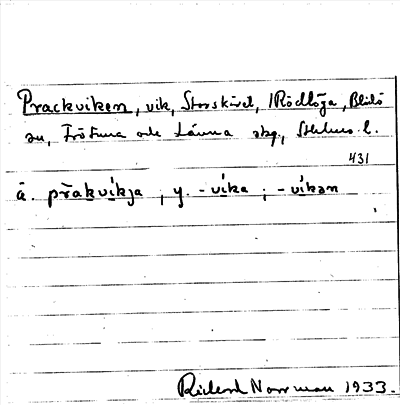 Prackviken, vik, Storskäret, 1 Rödlöga, Blidö
sn, Frötuna och Länna skg., Sthlms l.
431
ä. prakvikja, y. -vika; -vikən
Rickard Norrman 1933.